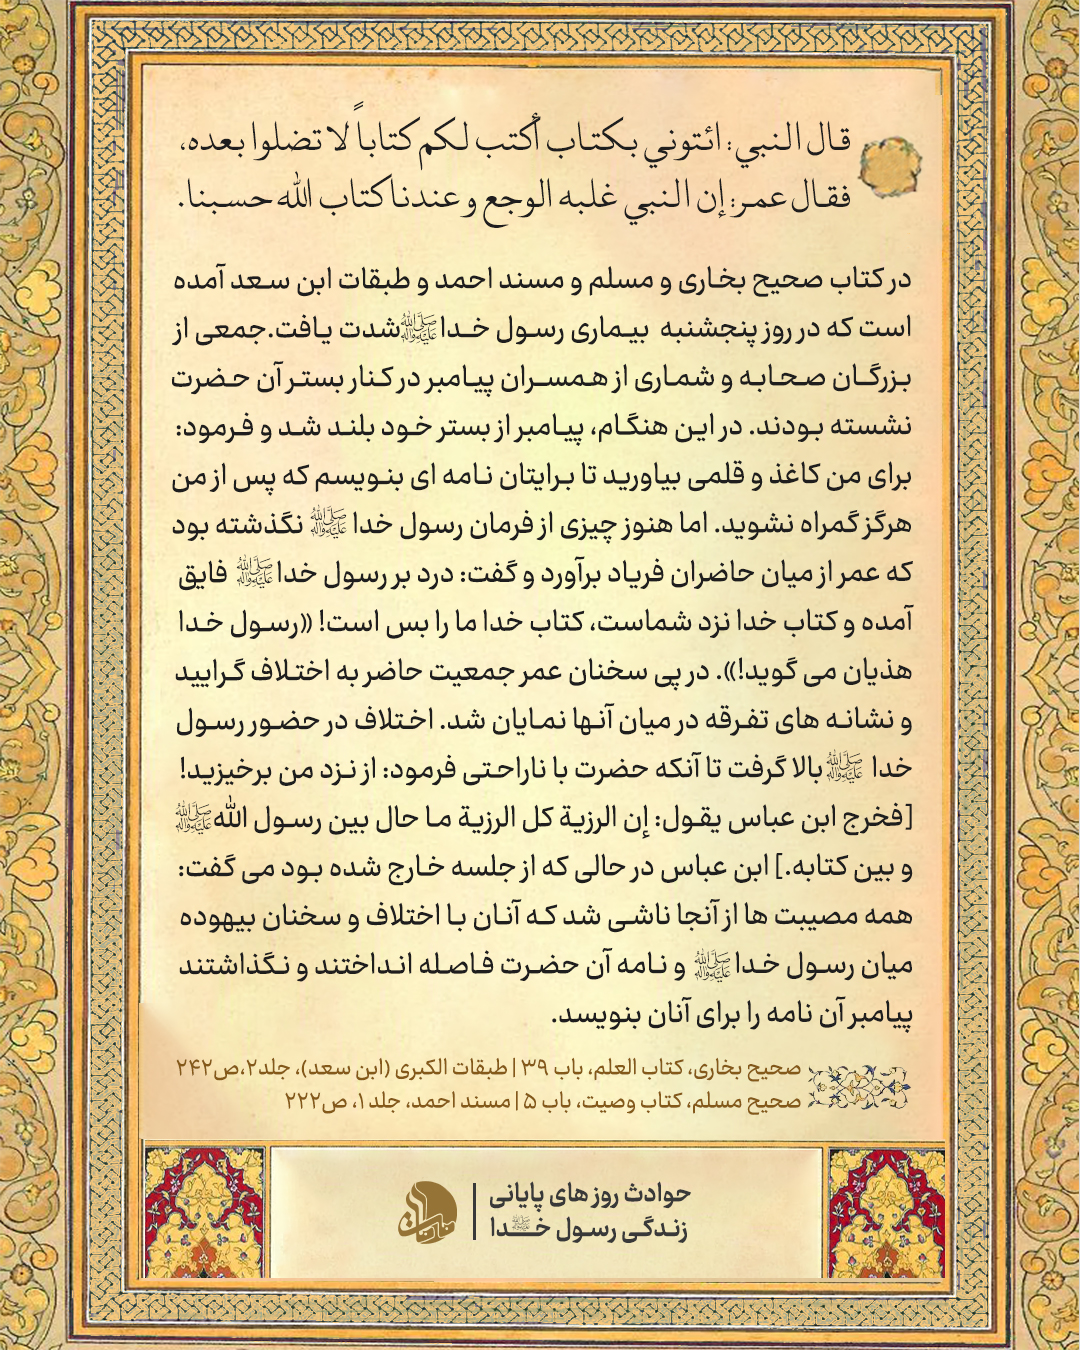 قال النبي: ائتوني بكتاب أكتب لكم كتاباً لا تضلوا بعده،
فقال عمر: إن النبي غلبه الوجع وعندنا كتاب الله حسبنا.
در کتاب صحیح بخاری و مسلم و مسند احمد و طبقات ابن سعد آمده
است که در روز پنجشنبه بیماری رسول خدا ﷺ شدت یافت. جمعی از
بزرگان صحابه و شماری از همسران پیامبر در کنار بستر آن حضرت
نشسته بودند. در این هنگام، پیامبر از بستر خود بلند شد و فرمود:
برای من کاغذ و قلمی بیاورید تا برایتان نامه ای بنویسم که پس از من
هرگز گمراه نشوید. اما هنوز چیزی از فرمان رسول خدا ﷺ نگذشته بود
که عمر از میان حاضران فریاد برآورد و گفت: درد بر رسول خدا ﷺ فایق
آمده و کتاب خدا نزد شماست، کتاب خدا ما را بس است! «رسول خدا
هذیان می گوید!». در پی سخنان عمر جمعیت حاضر به اختلاف گرایید
و نشانه های تفرقه در میان آنها نمایان شد. اختلاف در حضور رسول
خدا ﷺ بالا گرفت تا آنکه حضرت با ناراحتی فرمود: از نزد من برخیزید!
[فخرج ابن عباس یقول: إن الرزیة کل الرزیة ما حال بین رسول الله ﷺ
و بین کتابه.] ابن عباس در حالی که از جلسه خارج شده بود می گفت:
همه مصیبت ها از آنجا ناشی شد که آنان با اختلاف و سخنان بیهوده
میان رسول خدا ﷺ و نامه آن حضرت فاصله انداختند و نگذاشتند
پیامبر آن نامه را برای آنان بنویسد.
صحیح بخاری، کتاب العلم، باب ۳۹ | طبقات الکبری (ابن سعد)، جلد۲،ص۲۴۲
صحیح مسلم، کتاب وصیت، باب ۵ | مسند احمد، جلد ۱، ص۲۲۲
حوادث روز های پایانی
زندگی رسول خدا ﷺ